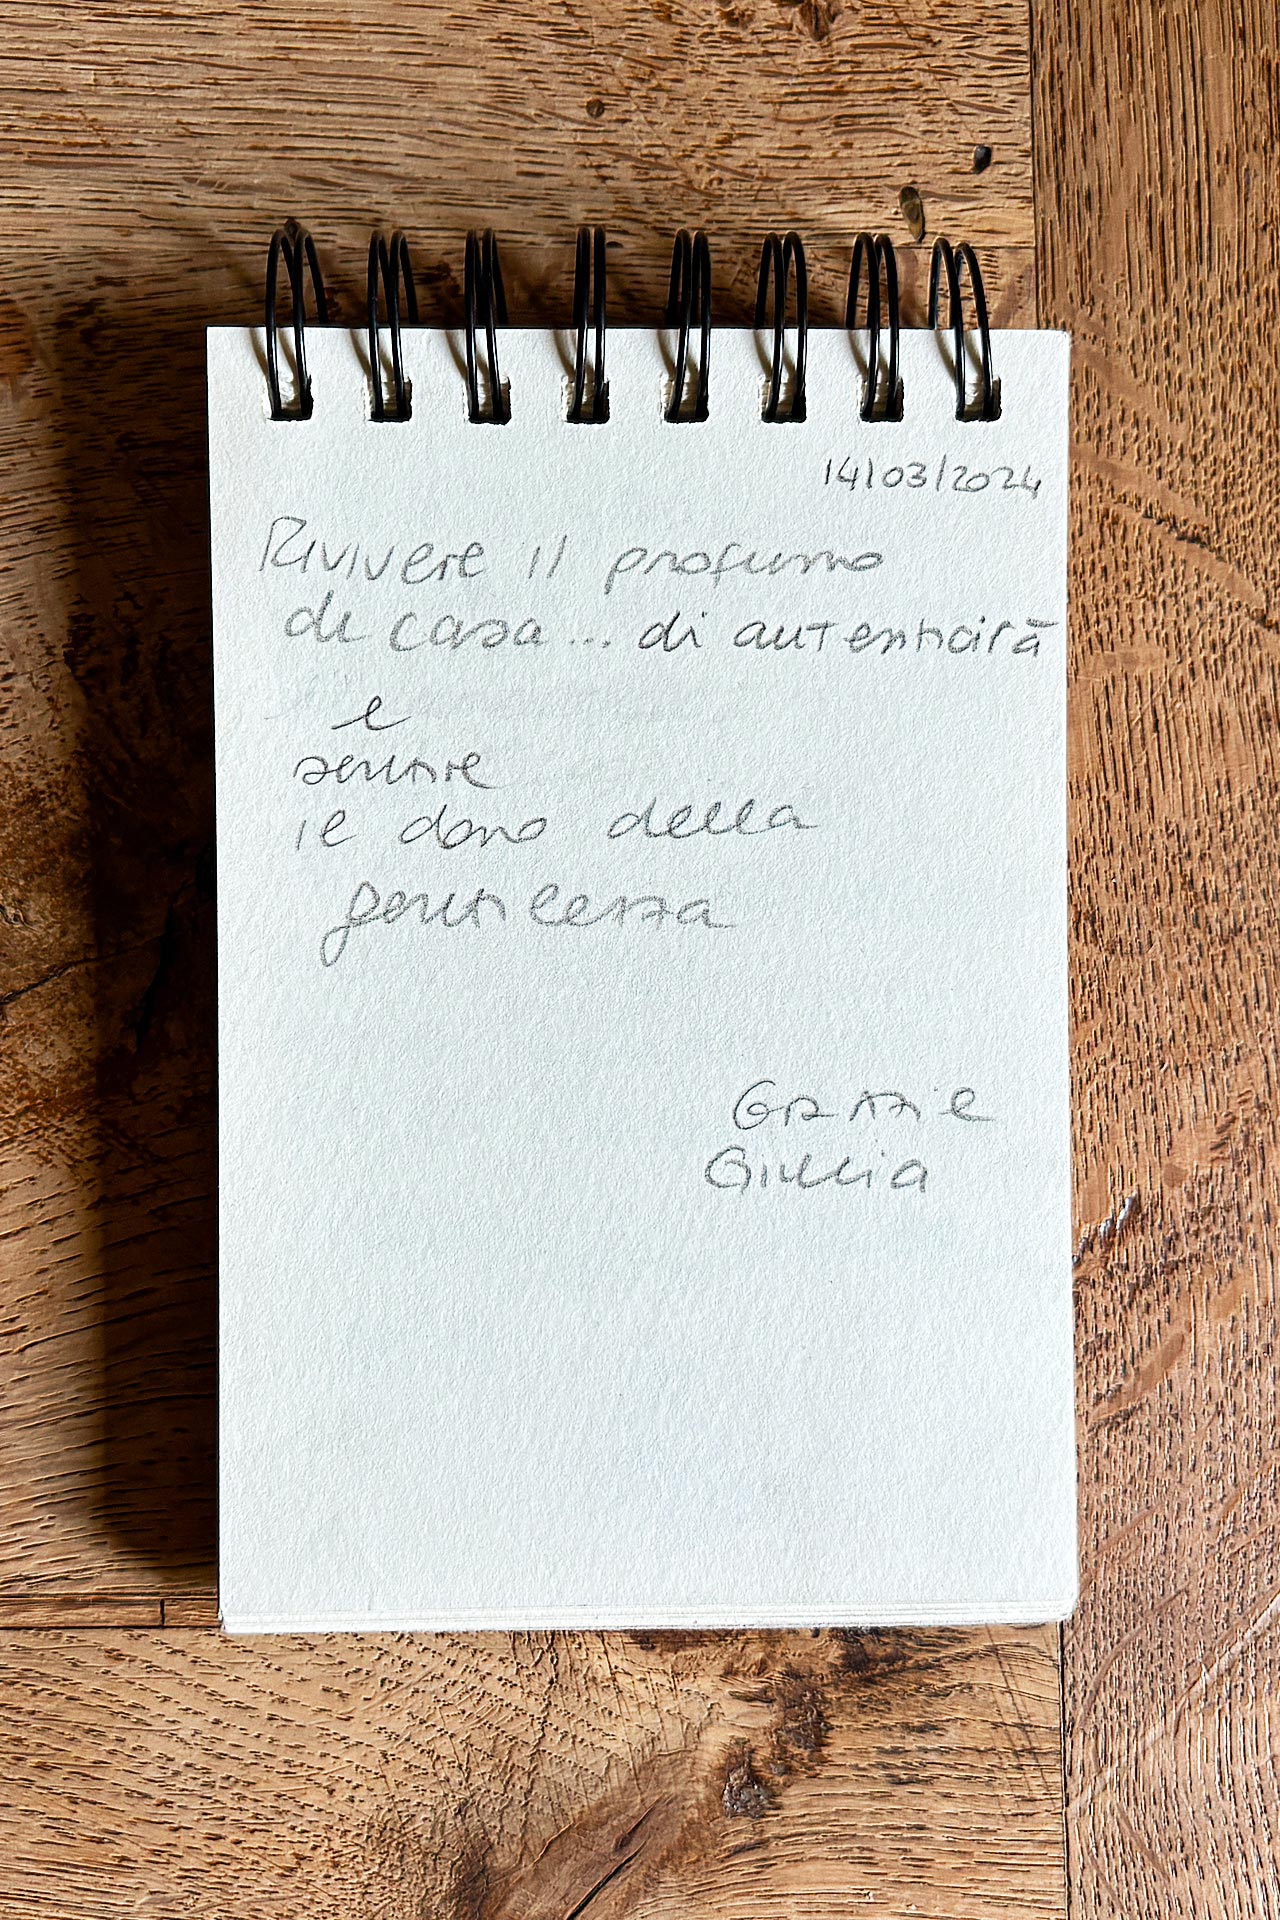 14/03/2024
Rivivere il profumo
di casa... di autenticità
e
sentire
il dono della
gentilezza
Grazie
Giulia